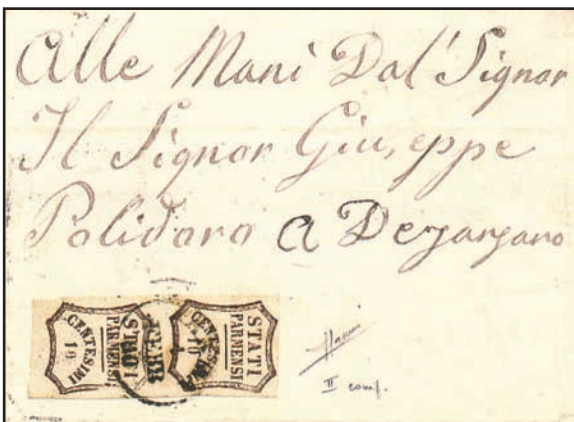 Alle Mani Dal' Signor
Il Signor Giuseppe
Polidoro a
STATI
PARMENSI
CENTESIMI
10
STATI
PARMENSI
CENTESIMI
10
II comp.